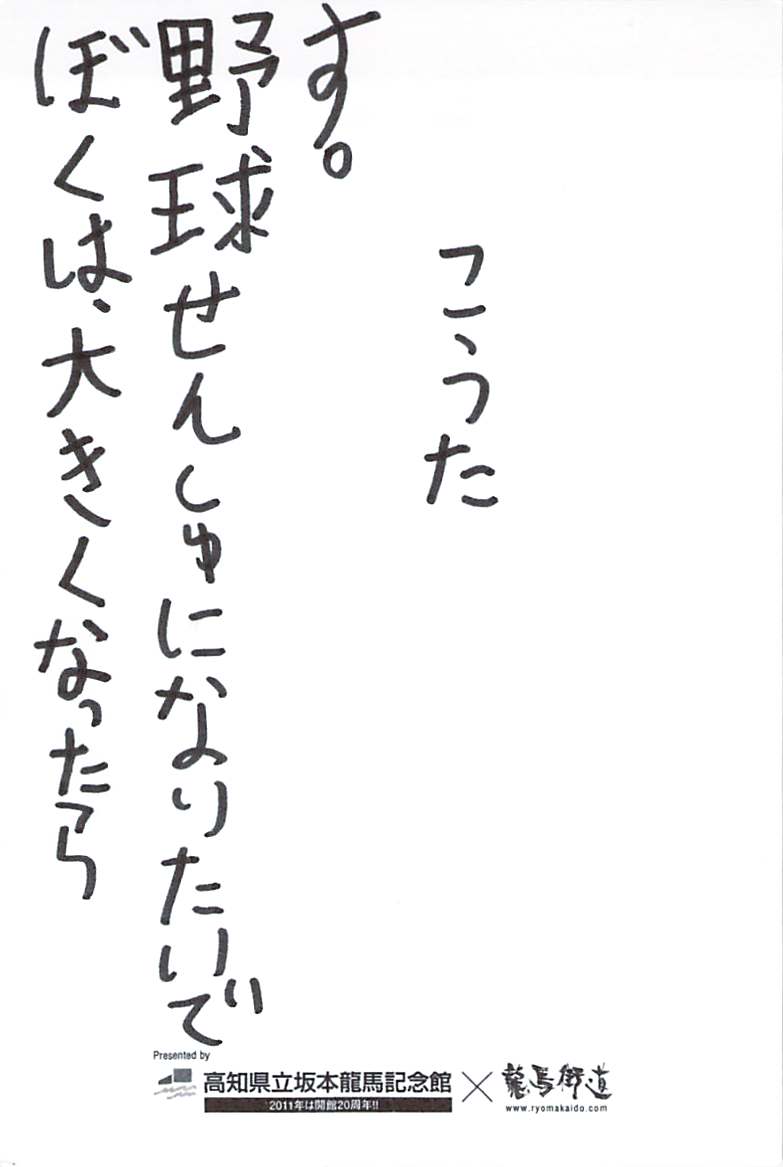 ぼくは、大きくなったら
野球せんしゅになりたいで
す。
こうた
Presented by
高知県立坂本龍馬記念館×龍馬街道
2011年は開館20周年!!
www.ryomakaido.com